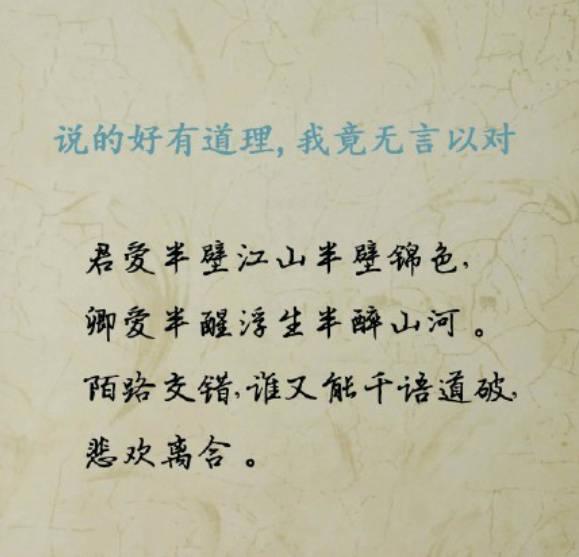 说的好有道理,我竟无言以对
君爱半壁江山半壁锦色,
卿爱半醒浮生半醉山河。
陌路交错,谁又能千语道破,
悲欢离合。